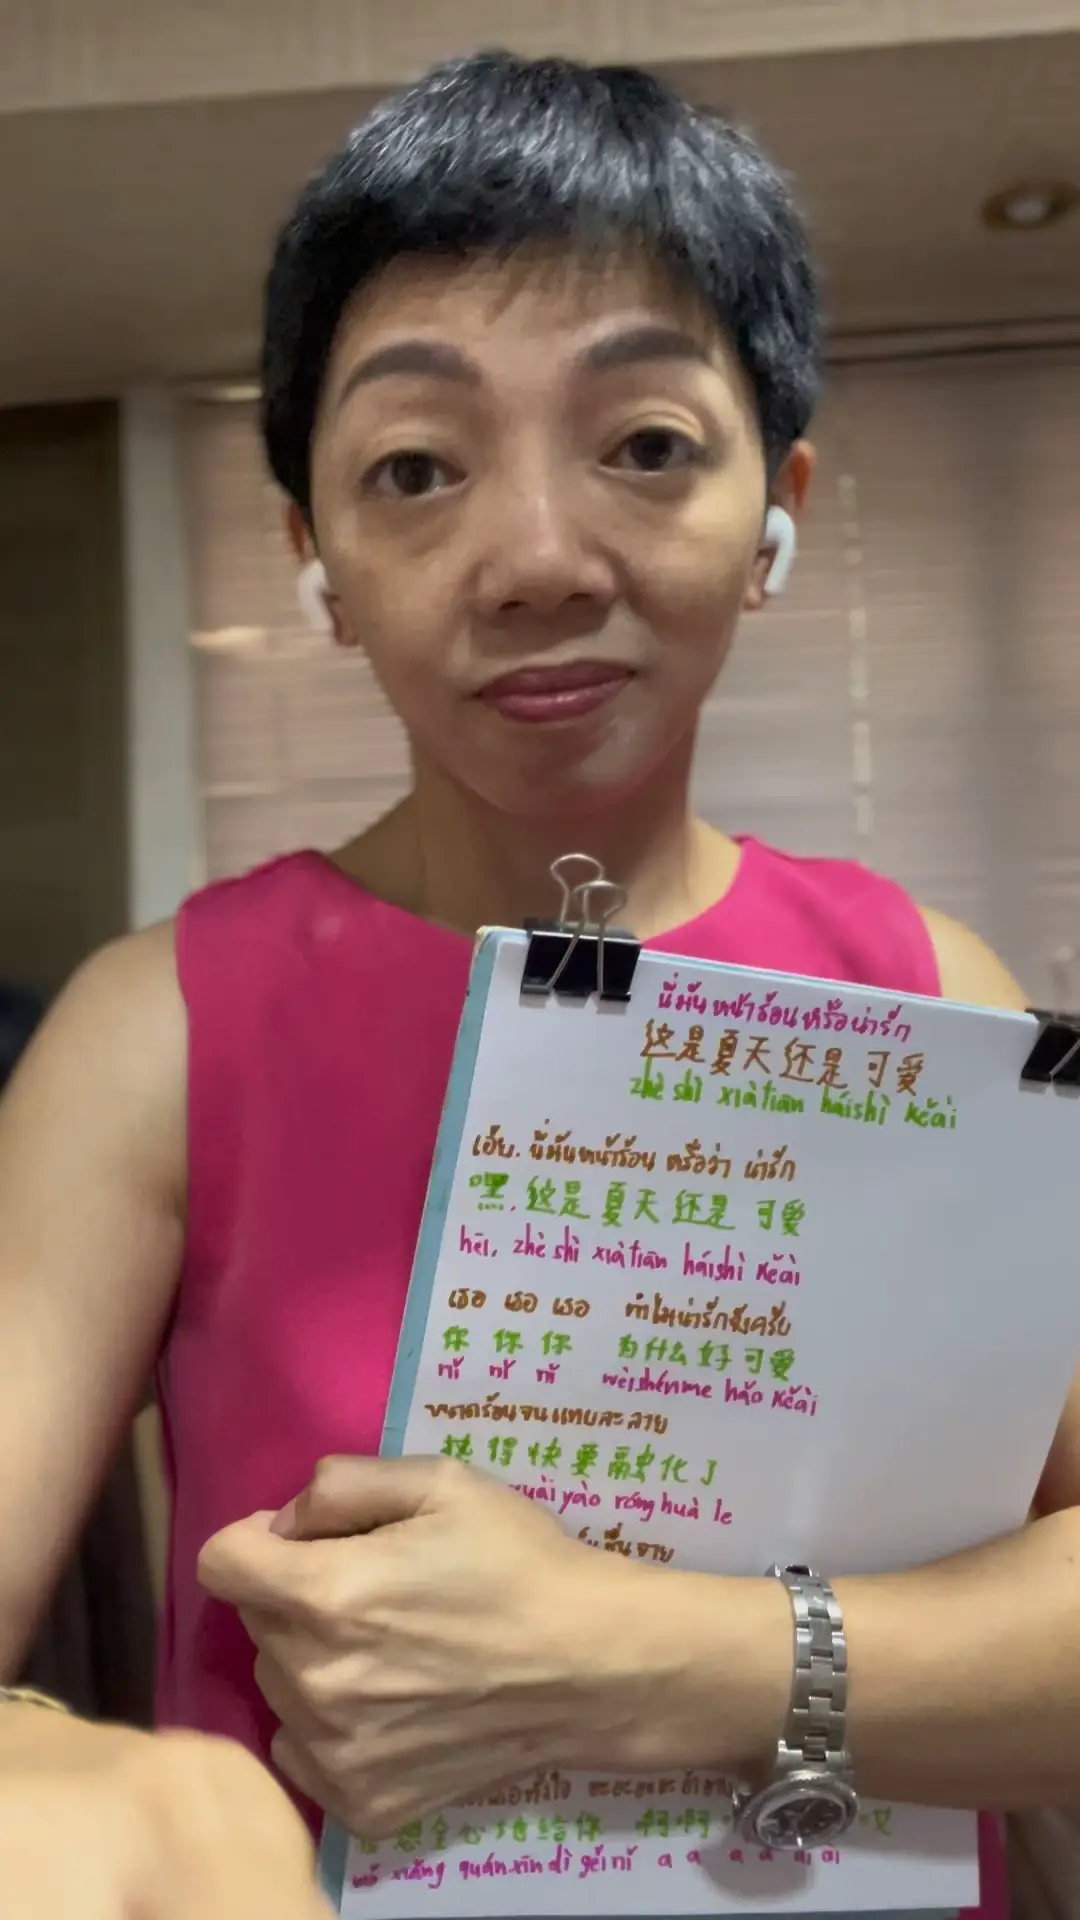 นี่มันหน้าร้อนหรือน่ารัก
这是夏天还是可爱
zhè shì xiàtiān háishì kěài
เฮ้ย. นี่มันหน้าร้อน หรือว่า น่ารัก
嘿, 这是夏天还是 可爱
hēi, zhè shì xiàtiān háishì kěài
เธอ เธอ เธอ ทำไมน่ารักจังครับ
你 你 你 为什么好可爱
nǐ nǐ nǐ wèishénme hǎo kěài
ขนาดร้อนจนแทบละลาย
热得快要融化了
kuài yào róng huà le
ชื่นจาย
想全心地给你 啊啊
wǒ xiǎng quánxīn dì gěi nǐ a a a a ai ai